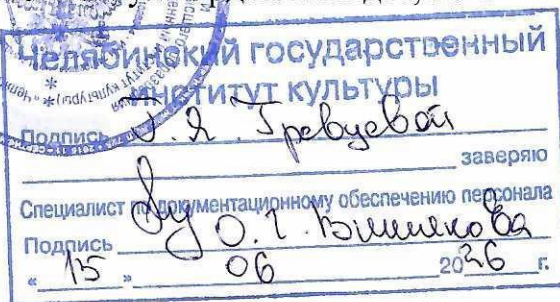 Челябинский государственный
институт культуры
Подпись Г. Я. Гревцевой
заверяю
Специалист по документационному обеспечению персонала
Подпись О. Г.
« 15 » 06 2026 г.